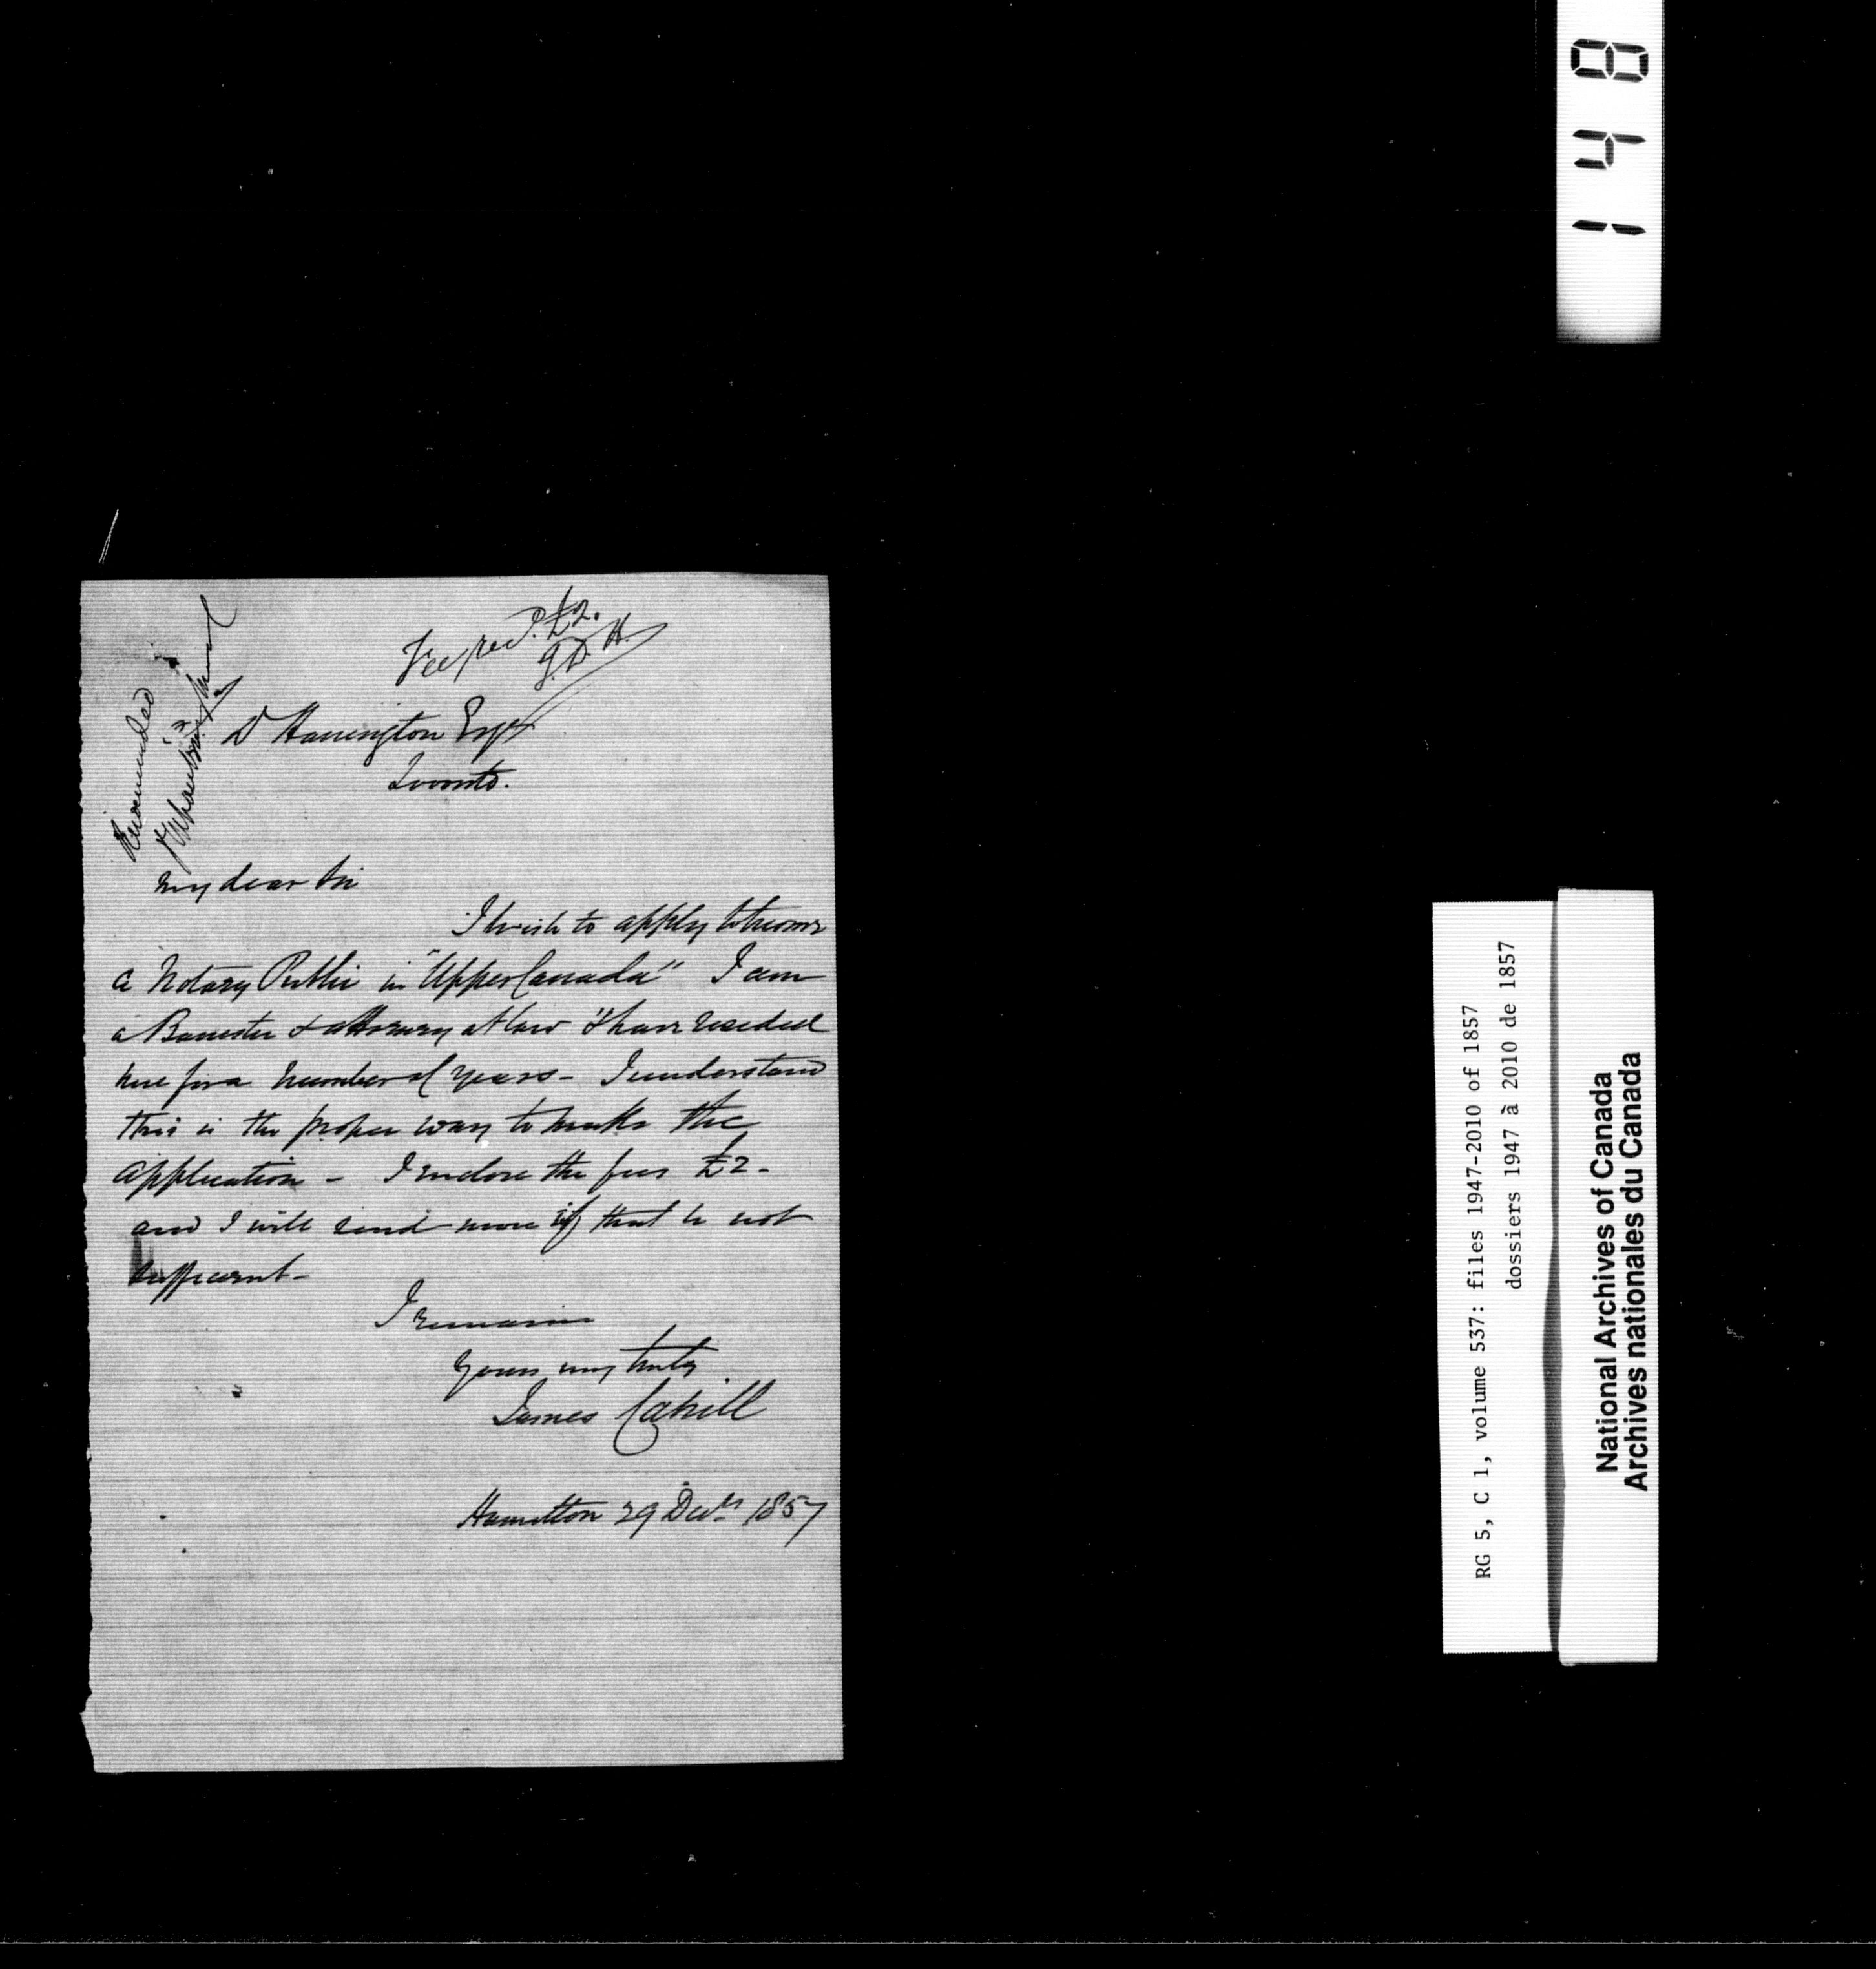 Fee recd. £2.
G.D.H.
Recommended
D Harrington Esqr
Toronto.
My dear Sir
I wish to apply to become
a Notary Public in "Upper Canada" I am
a Barrister & attorney at law & have resided
here for a number of years - I understand
this is the proper way to make the
application - I enclose the fees £2 -
and I will send more if that be not
sufficient -
I remain
yours very truly
James Cahill
Hamilton 29 Decr 1857
148
RG 5, C 1, volume 537: files 1947-2010 of 1857
dossiers 1947 à 2010 de 1857
National Archives of Canada
Archives nationales du Canada